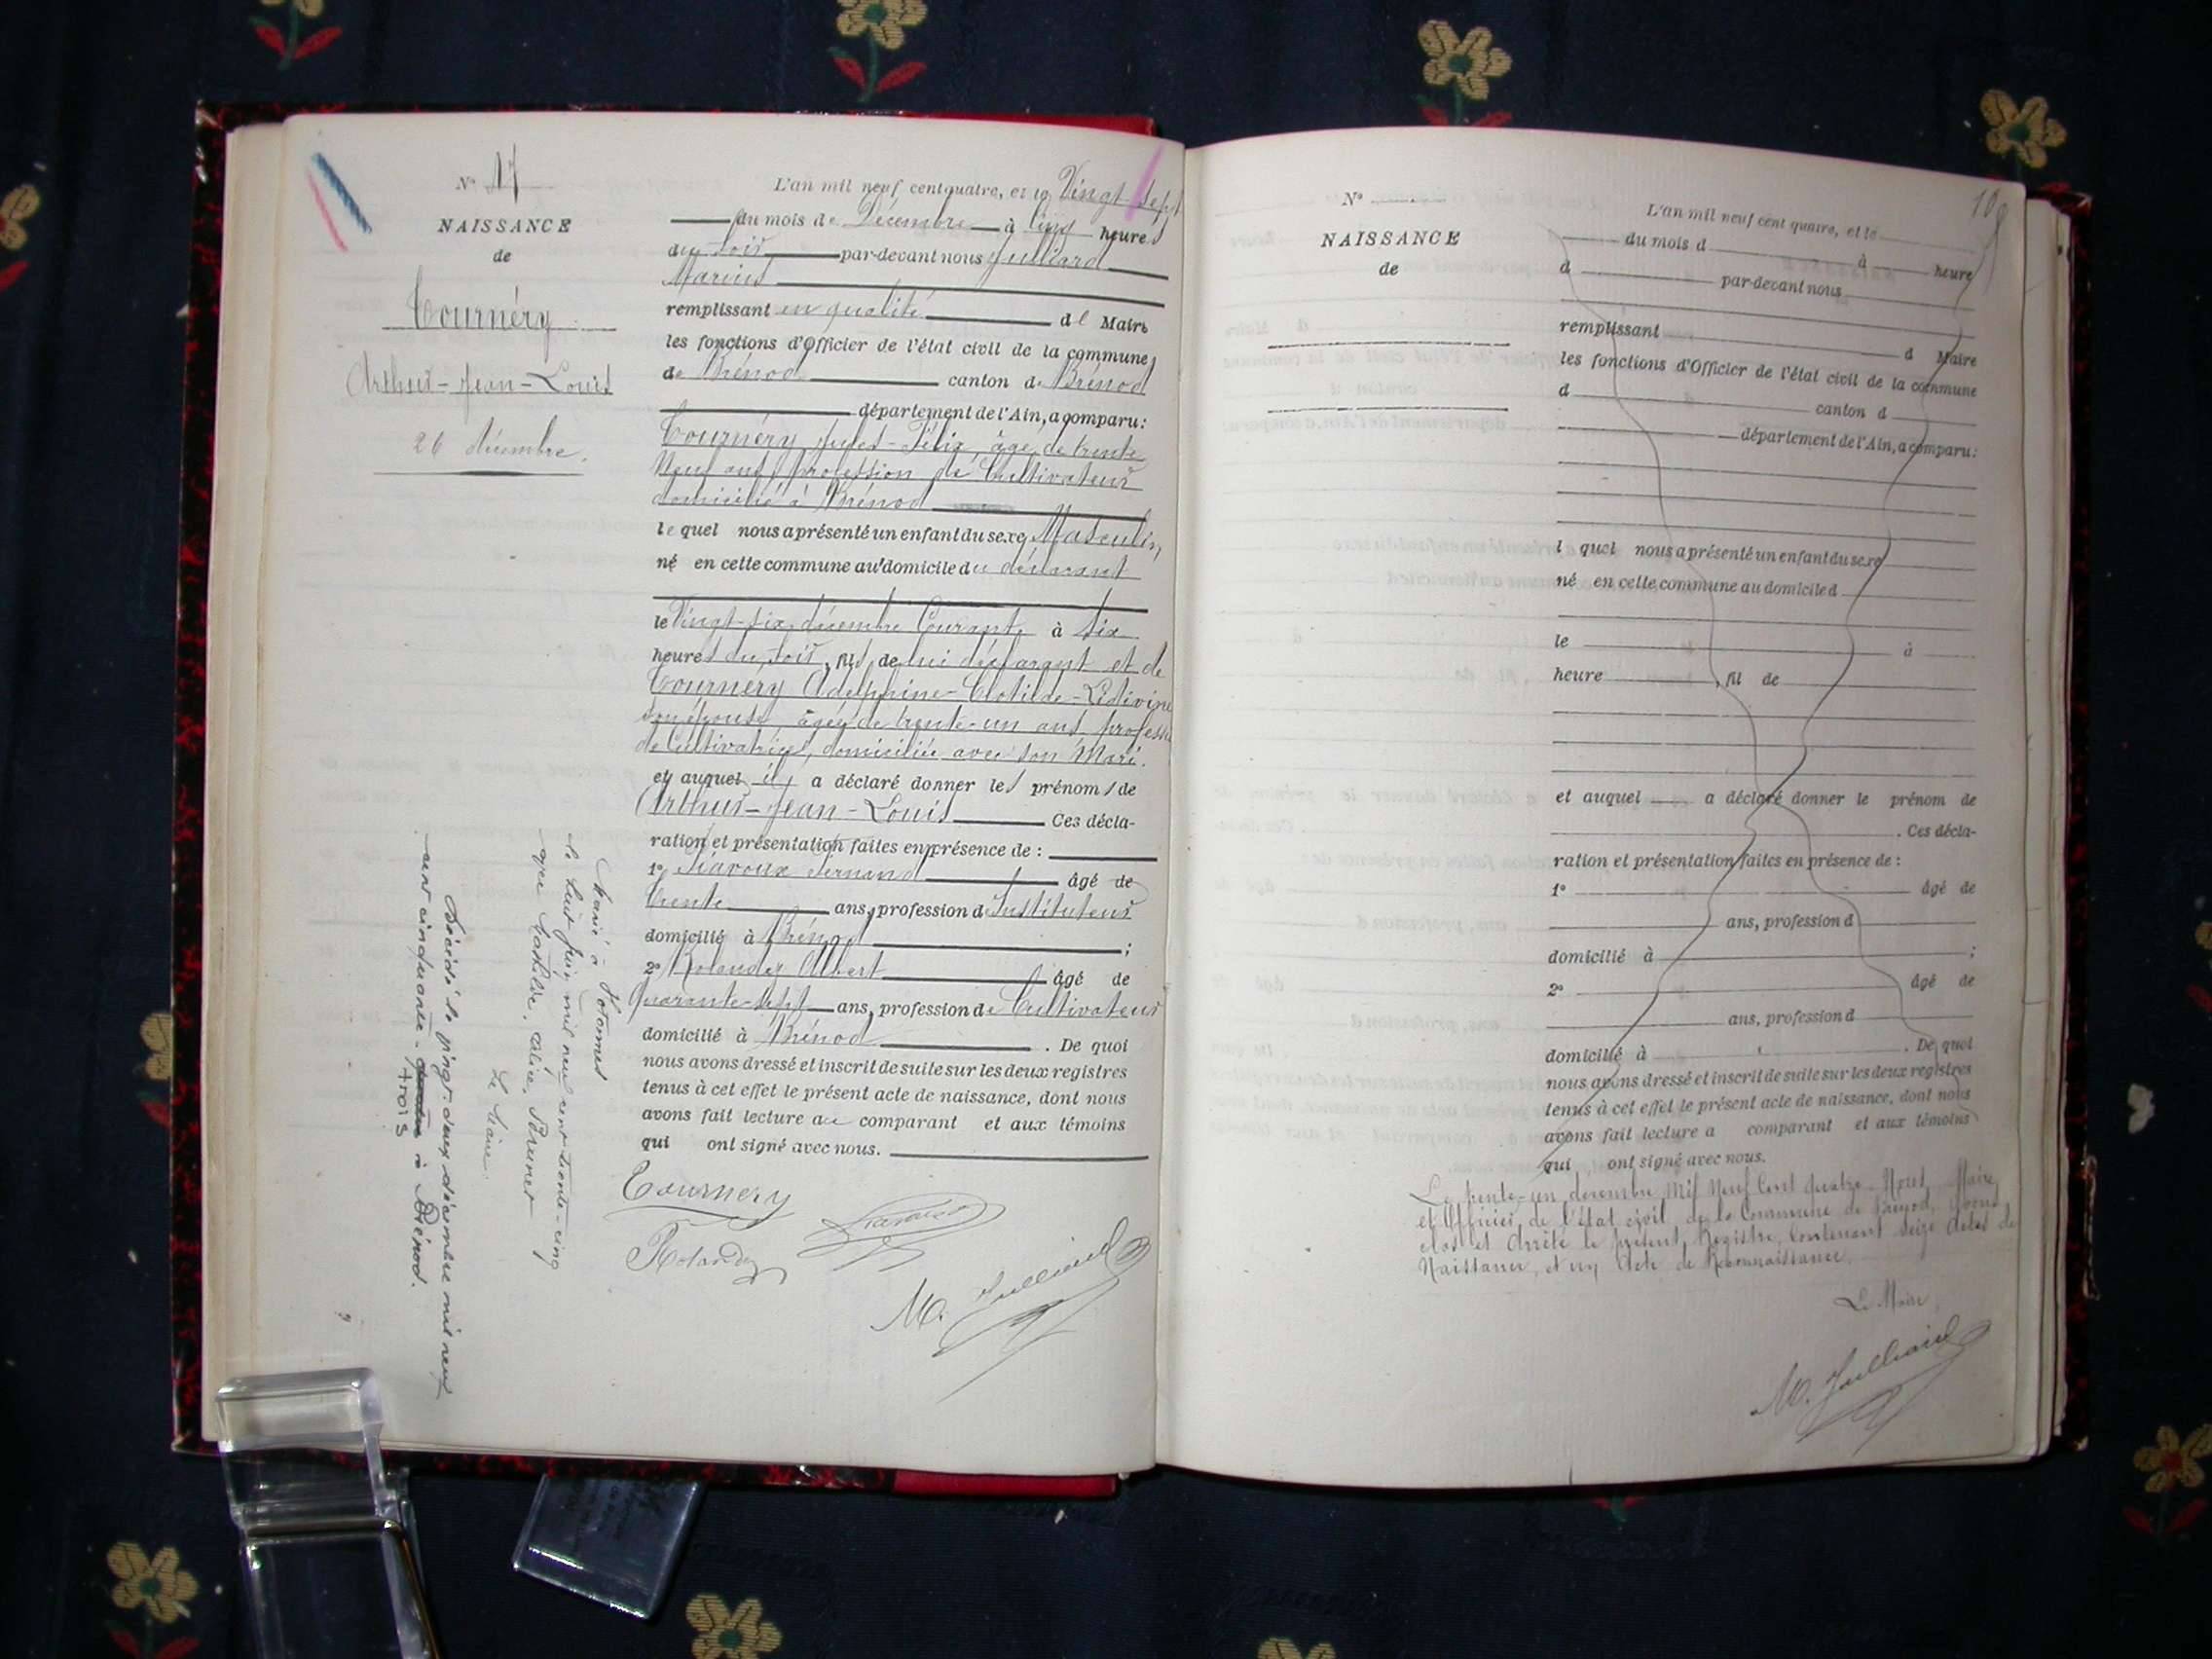 N° 17
NAISSANCE
de
Tournéry
Arthur-Jean-Louis
26 décembre.
L'an mil neuf cent quatre, et le Vingt-sept
du mois de Décembre à cinq heures
du soir par-devant nous Julliard
Marius
remplissant en qualité de Maire
les fonctions d'Officier de l'état civil de la commune
de Brénod canton de Brénod
département de l'Ain, a comparu:
Tournéry Jules-Félix, âgé de trente
Neuf ans, profession de Cultivateur
domicilié à Brénod
lequel nous a présenté un enfant du sexe Masculin
né en cette commune au domicile du déclarant
le Vingt-six décembre Courant à six
heures du soir, fils de lui déclarant et de
Tournéry Adelphine-Clotilde-
son épouse, âgée de trente-un ans, profession
de Cultivatrice, domiciliée avec son Mari.
et auquel il a déclaré donner les prénoms de
Arthur-Jean-Louis Ces décla-
ration et présentation faites en présence de :
1° Fernand âgé de
trente ans, profession d'Instituteur
domicilié à Brénod ;
2° Rolandez Albert âgé de
Quarante-sept ans, profession de Cultivateur
domicilié à Brénod . De quoi
nous avons dressé et inscrit de suite sur les deux registres
tenus à cet effet le présent acte de naissance, dont nous
avons fait lecture au comparant et aux témoins
qui ont signé avec nous.
Tournery
Rolandez
M. Julliard
Marié à Hotonnes
le huit juin mil neuf cent trente-cinq
avec Mathilde, Alice, Brunet
Le Maire
Décédé le vingt-deux décembre mil neuf
cent cinquante- à Brénod.
trois
N°
NAISSANCE
de
10
L'an mil neuf cent quatre, et le
du mois d à heure
d par-devant nous
remplissant d Maire
les fonctions d'Officier de l'état civil de la commune
d canton d
département de l'Ain, a comparu:
l quel nous a présenté un enfant du sexe
né en cette commune au domicile d
le à
heure , fil de
et auquel a déclaré donner le prénom de
. Ces décla-
ration et présentation faites en présence de :
1° âgé de
ans, profession d
domicilié à ;
2° âgé de
ans, profession d
domicilié à . De quoi
nous avons dressé et inscrit de suite sur les deux registres
tenus à cet effet le présent acte de naissance, dont nous
avons fait lecture a comparant et aux témoins
qui ont signé avec nous.
Le trente-un décembre Mil Neuf Cent Quatre-Nous, Maire
et Officier de l'état civil de la Commune de Brénod, avons
clos et Arrêté le présent Registre, Contenant Seize Actes de
Naissance, et un Acte de Reconnaissance.
Le Maire
M. Julliard